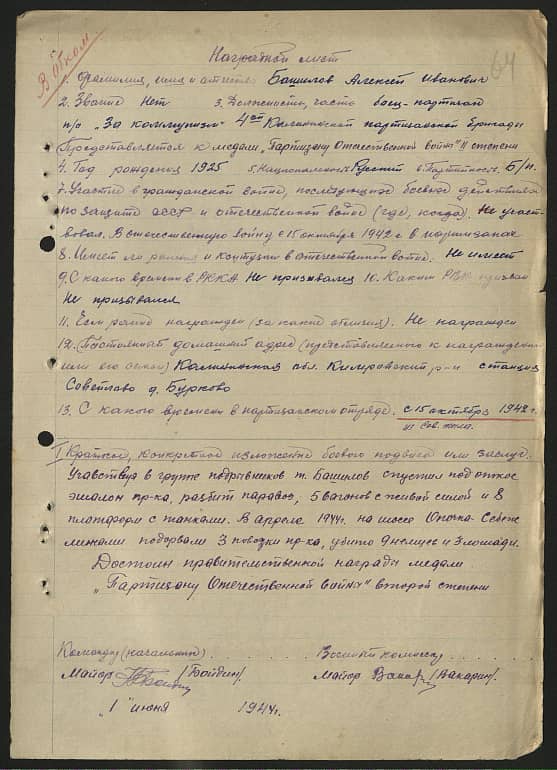 В обком
64
Наградной лист
1. Фамилия, имя и отчество Башилов Алексей Иванович
2. Звание Нет 3. Должность, часть боец-партизан
п/о "За коммунизм" 4ой Калининской партизанской бригады
Представляется к медали "Партизану Отечественной войны" II степени
4. Год рождения 1925 5. Национальность Русский 6. Партийность Б/п.
7. Участие в гражданской войне, последующих боевых действиях
по защите СССР и отечественной войне (где, когда). Не участ-
вовал. В отечественную войну с 15 октября 1942 г. в партизанах
8. Имеет ли ранения и контузии в отечественной войне. Не имеет
9. С какого времени в РККА Не призывался 10. Каким РВК призван
Не призывался
11. Чем ранее награжден (за какие отличия). Не награжден
12. Постоянный домашний адрес (представляемого к награждению
или его семьи) Калининская обл. Кимровский р-н станция
Савёлово д. Бурково
13. С какого времени в партизанском отряде. с 15 октября 1942 г.
из Сов. тыла.
I Краткое, конкретное изложение боевого подвига или заслуг.
Учавствуя в группе подрывников т. Башилов спустил под откос
эшалон пр-ка, разбит паравоз, 5 вагонов с живой силой и 8
платформ с танками. В апреле 1944г. на шоссе Опочка-Себеж
минами подорвали 3 повозки пр-ка, убито 9 немцев и 3 лошади.
Достоин правительственной награды медали
"Партизану Отечественной войны" второй степени
Командир (начальник) . . . . . Военный комиссар . . . . .
Майор /Бойдин/. Майор Вакар /Вакарин/.
"1" июня 1944г.